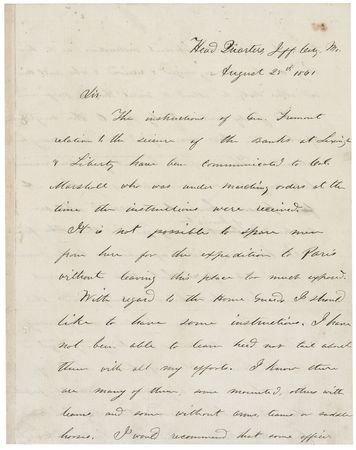 Head Quarters, Jeff City, Mo.
August 25th 1861
Sir
The instructions of Gen. Fremont
relation to the seizure of the Banks at Lexing
& Liberty have been communicated to Col.
Marshall who was under marching orders at the
time the instructions were received.
It is not possible to spare men
from here for the expedition to Paris
without leaving this place too much exposed.
With regard to the Home Guards I should
like to have some instructions. I have
not been able to learn head nor tail about
them with all my efforts. I know there
are many of them, some mounted, others with
teams, and some without arms, teams or saddle
horses. I would recommend that some officer